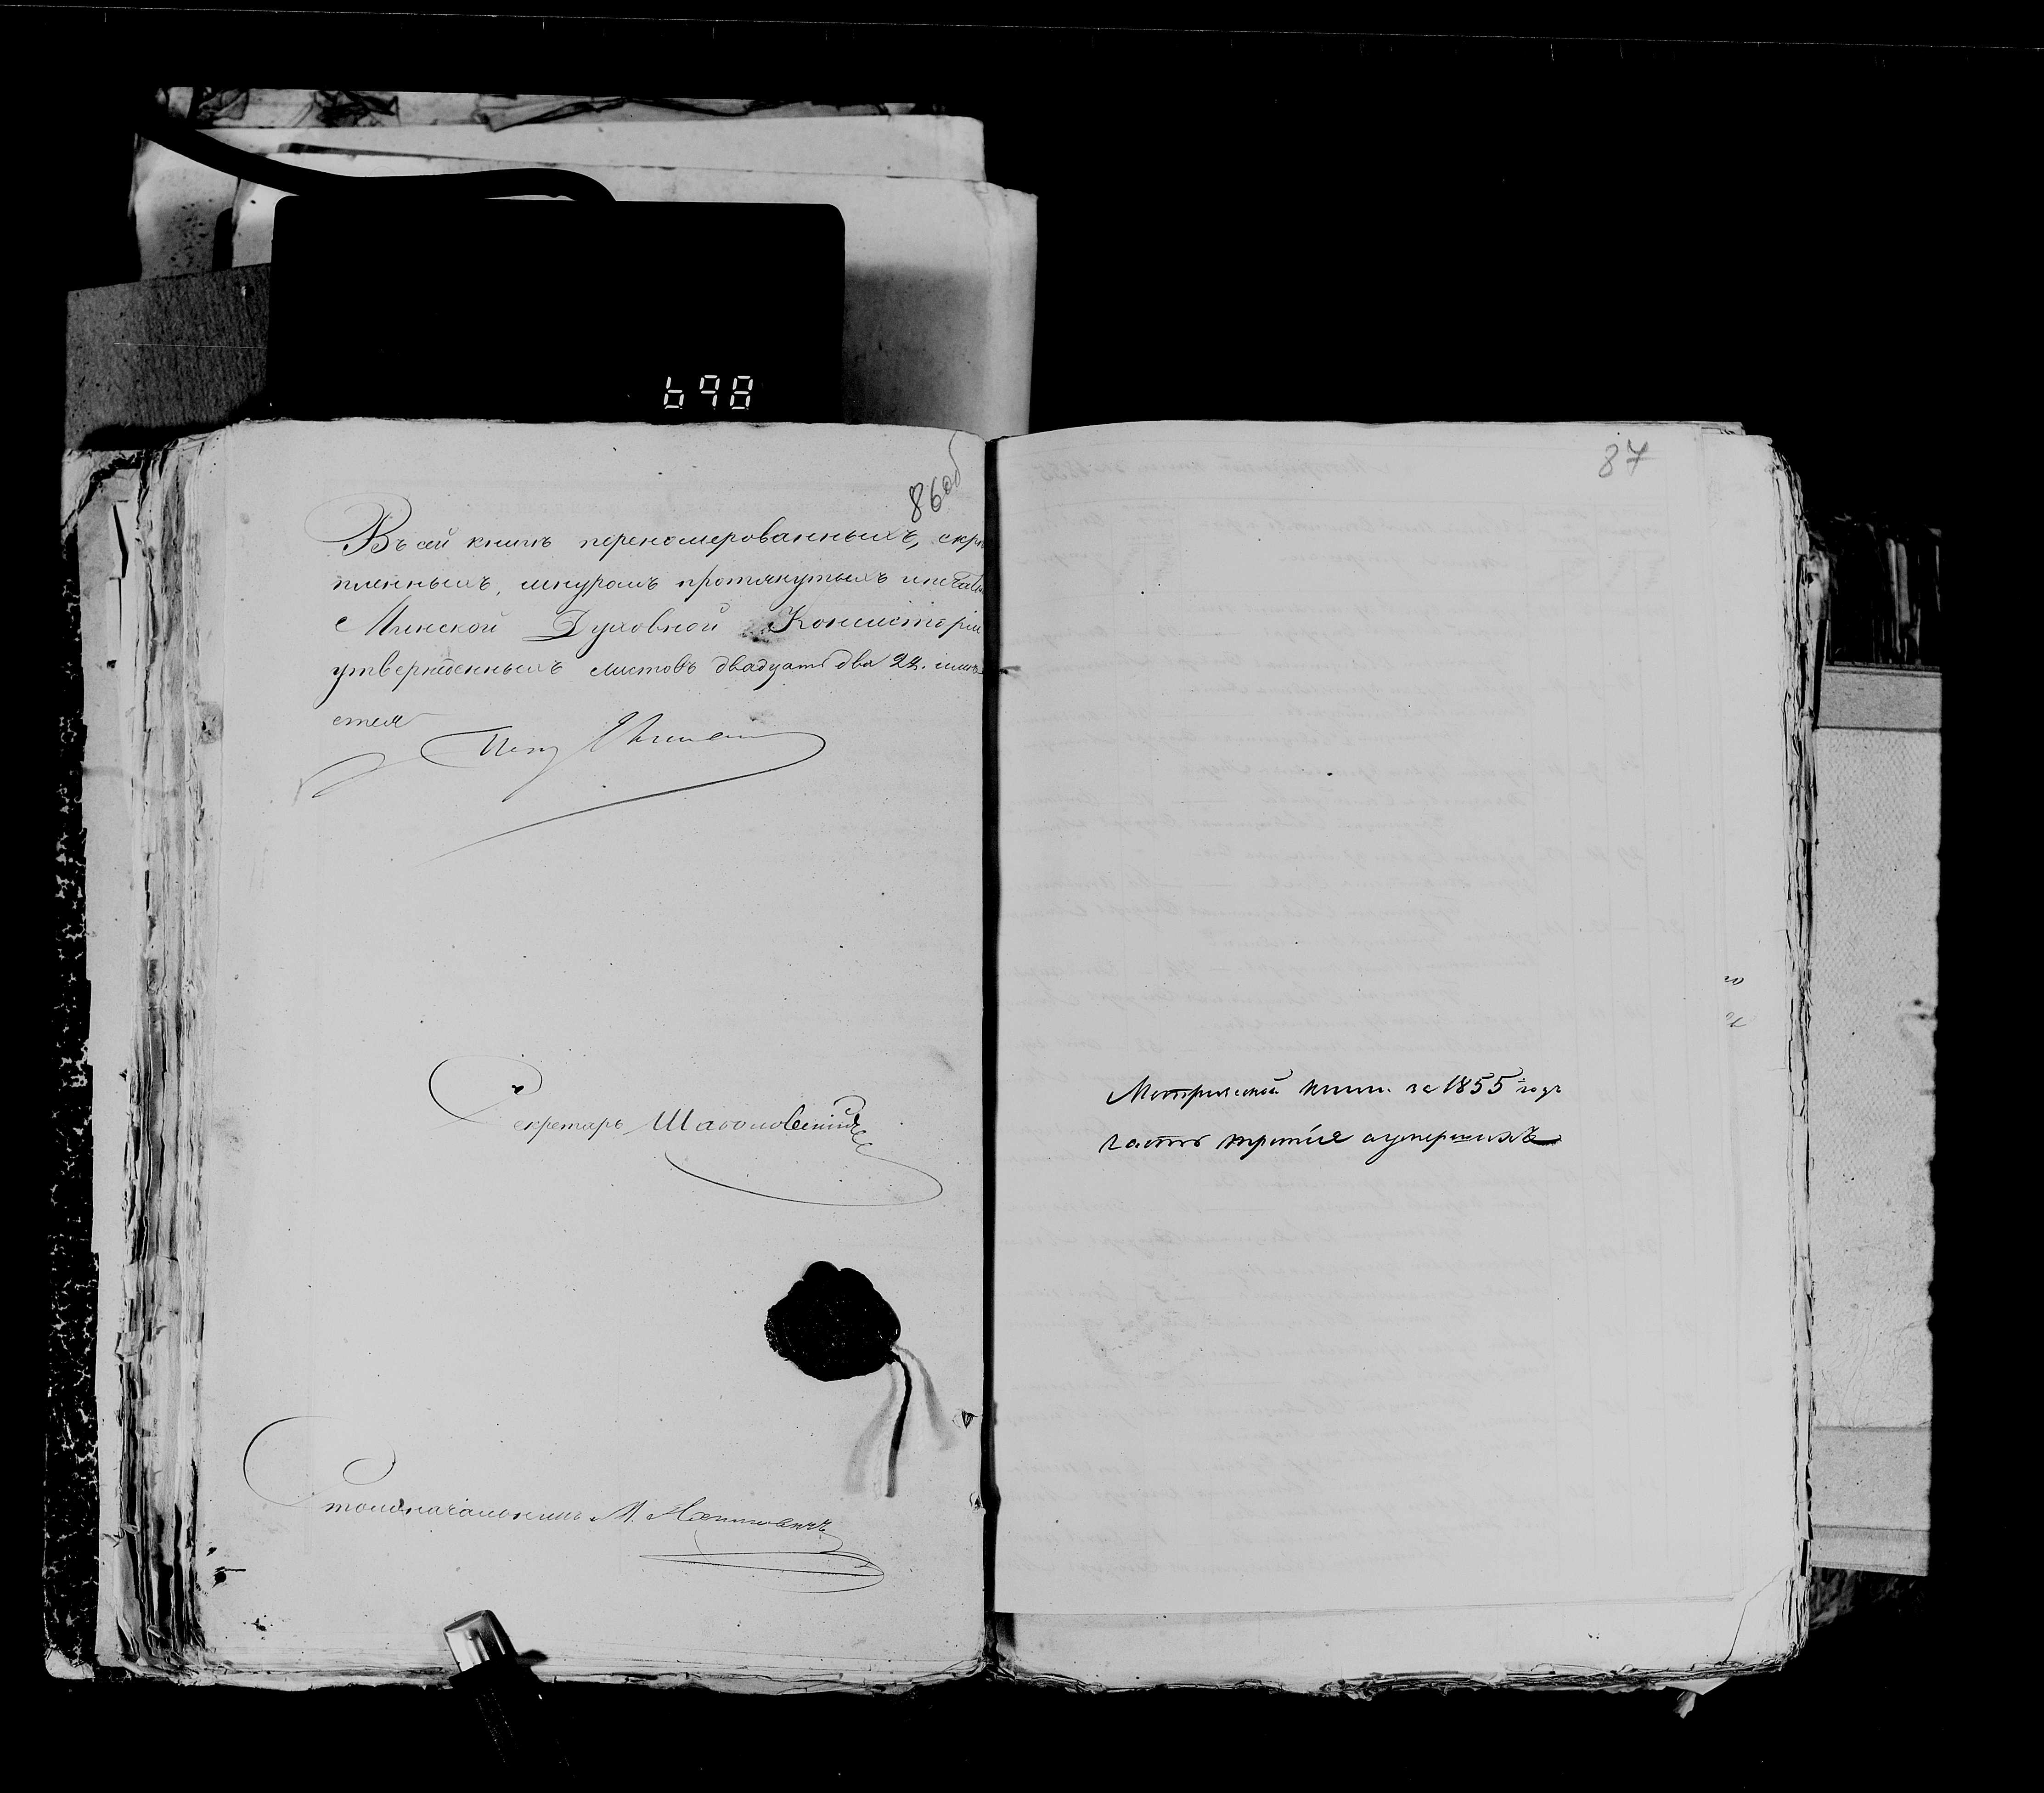 698
86об
Въ сей книгѣ перенумерованныхъ, скрѣ
пленныхъ, шнуромъ протянутыхъ и печатью
Минской Духовной Консисторіи
утвержденныхъ листовъ двадцать два 22. числ
ится
Секретарь
Столоначальникъ М.
87
Метрической книги за 1855 годъ
часть третія о умершихъ